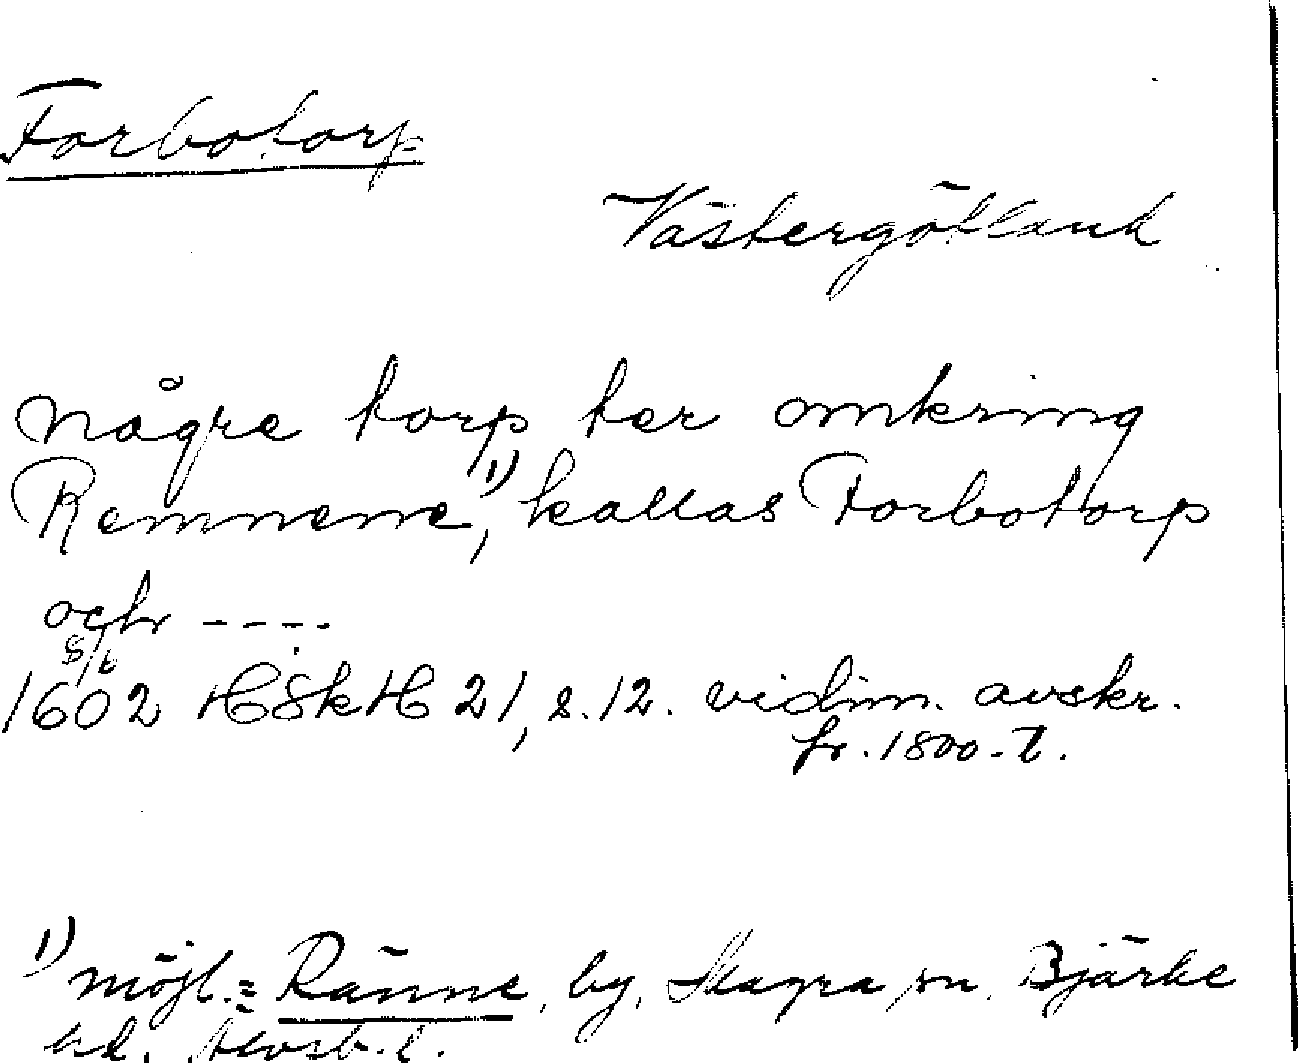 Forbotorp
Västergötland
någre torp ter omkring
Remnene,¹⁾ kallas Forbotorp
ochr ----
8/6
1602 HSkH 21, s. 12. vidim. avskr.
fr. 1800-t.
1) möjl. = Ränne, by, Magra sn, Bjärke
hd. Älvsb. l.